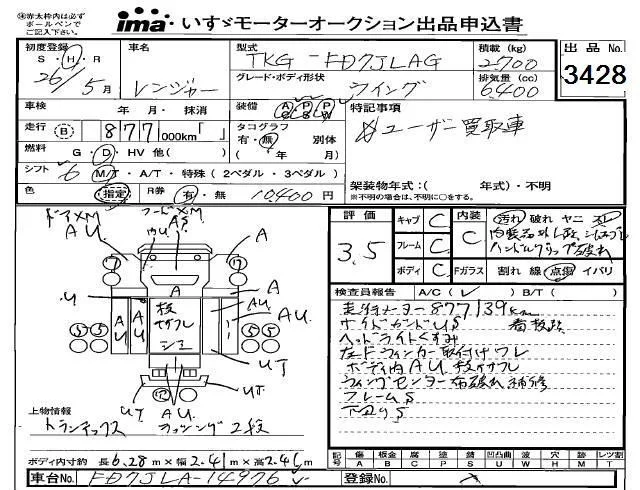 ※赤太枠内は必ず
ボールペンで
ご記入下さい。
ima いすゞモーターオークション出品申込書
初度登録 車名 型式 TKG-FD7JLAG 積載(kg) 2,700 出品No.
S・H・R 26/5月 レンジャー グレード・ボディ形状 ウイング 排気量(cc) 6400 3428
車検 年 月・抹消 装備 A/C P/S P/W 特記事項
走行 B 877 000km「 」 タコグラフ 有・無 別体 ユーザー買取車
燃料 G・D・HV 他( ) ( 年 月)
シフト 6 M/T・A/T・特殊(2ペダル・3ペダル) 架装物年式:( 年式)・不明
色 指定 R券 有・無 10400円 ※不明の場合は、不明に○をする。
ドアXM フードXM
AU AS
UU A
A
U A
AU AU 板 AU AU
サフレ
シミ UT
UT
UT AU
評価 3.5 キャブ C 内装 C 汚れ 破れ ヤニ
フレーム C ハンドルグリップ破れ
ボディ C Fガラス 割れ 線 点傷 イバリ
検査員報告 A/C( ) B/T( )
走行メーター877139km
サイドガードUS 看板跡
ヘッドライトくすみ
左ドアウィンカー取付けワレ
ボディ内AU 板サフレ
ウィングセンター布破れ補修
フレームS
下廻りS
上物情報
トランテックス ラッシング2段
記号 傷 A 凹 B 板金 C 腐食 P 塗装 S サビ U 凹 W 波 H 穴 M 跡 T レツ割
ボディ内寸約 長6.28m×幅2.41m×高2.41m
車台No. FD7JLA-14976 登録No.